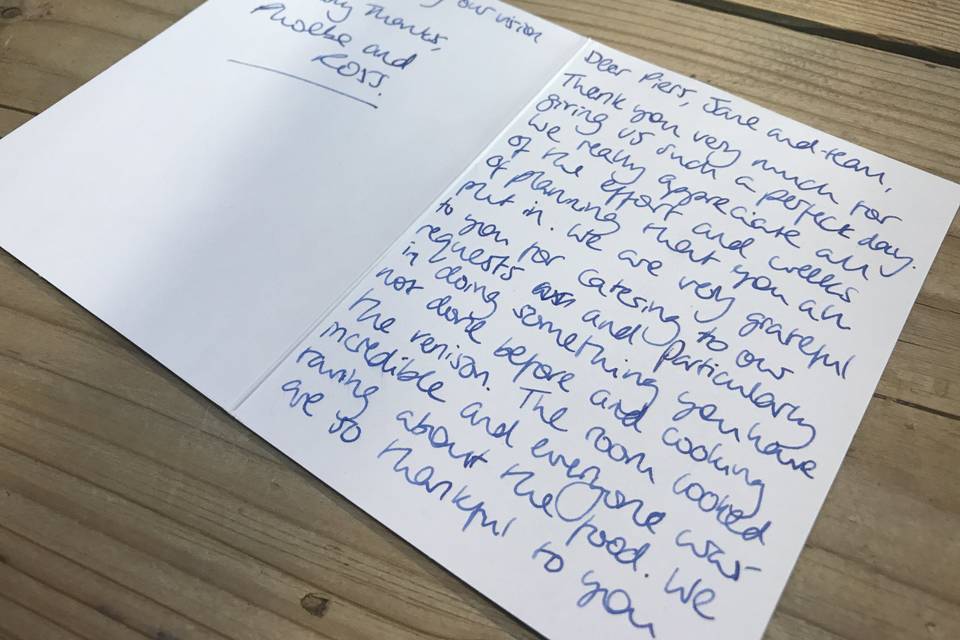 our vision
Thanks,
Phoebe and
Ross.
Dear Piers, Jane and team,
Thank you very much for
giving us such a perfect day.
We really appreciate all
of the effort and weeks
of planning that you all
put in. We are very grateful
to you for catering to our
requests and particularly
in doing something you have
not done before and cooking
the venison. The room looked
incredible and everyone was
raving about the food. We
are so thankful to you